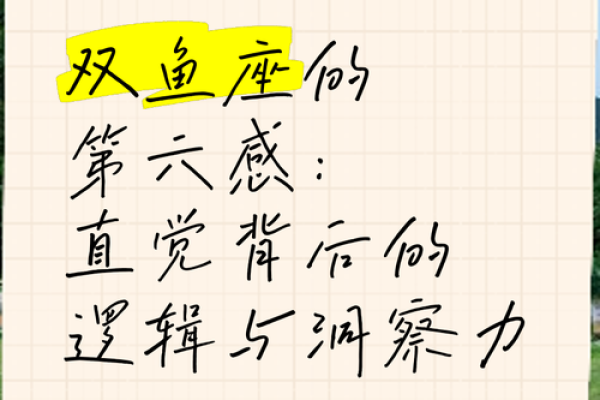 双鱼座的
第六感：
直觉背后的
逻辑与洞察力